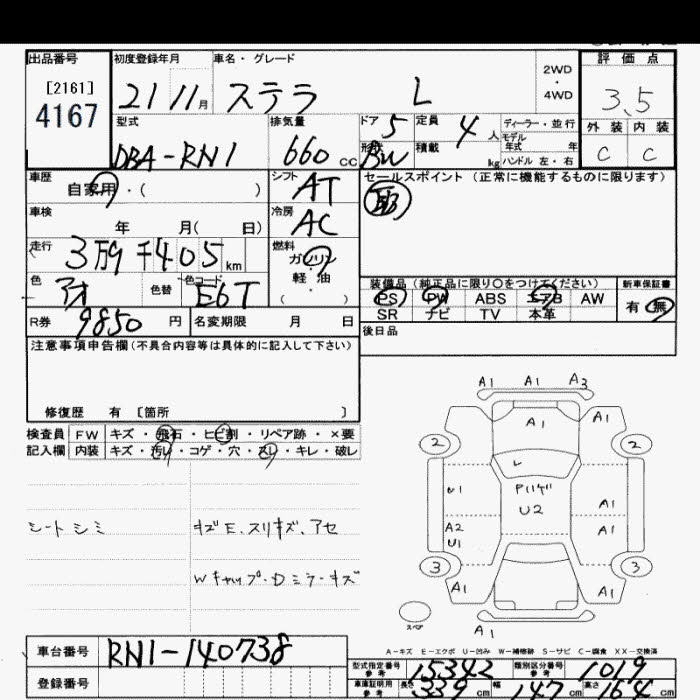 出品番号 初度登録年月 車名・グレード 2WD・4WD 評価点
[2161]
4167
21 11月 ステラ L 3.5
型式 排気量 ドア 5 定員 4人 ディーラー・並行 外装 内装
DBA-RN1 660cc 形状 BW 積載 kg モデル年式 年 C C
ハンドル 左・右
車歴 自家用・( ) シフト AT セールスポイント (正常に機能するものに限ります)
車検 年 月( 日) 冷房 AC
走行 3万9千405km 燃料 ガソリン・軽油
( ・ )
色 アオ 色替 色コード E6T 装備品 (純正品に限り○をつけてください) 新車保証書
PS PW ABS エアB AW 有・無
R券 9850円 名変期限 月 日 SR ナビ TV 本革
後日品
注意事項申告欄(不具合内容等は具体的に記入して下さい)
修復歴 有 [箇所 ]
検査員 FW キズ・飛石・ヒビ割・リペア跡・×要
記入欄 内装 キズ・汚レ・コゲ・穴・スレ・キレ・破レ
A1 A1 A3
A1 A1
2 2
U1 U2 A1
A2 A1
U1
シートシミ キズE、スリキズ、アセ
Wキャップ・Dミラーキズ
3 3
A1 A1
スペア
A1
A-キズ E-エクボ U-凹み W-補修跡 S-サビ C-腐食 XX-交換済
車台番号 RN1-140738
登録番号
型式指定番号 参考 15342 類別区分番号 参考 1019
車庫証明用 参考 長さ 339cm 幅 147cm 高さ 164cm